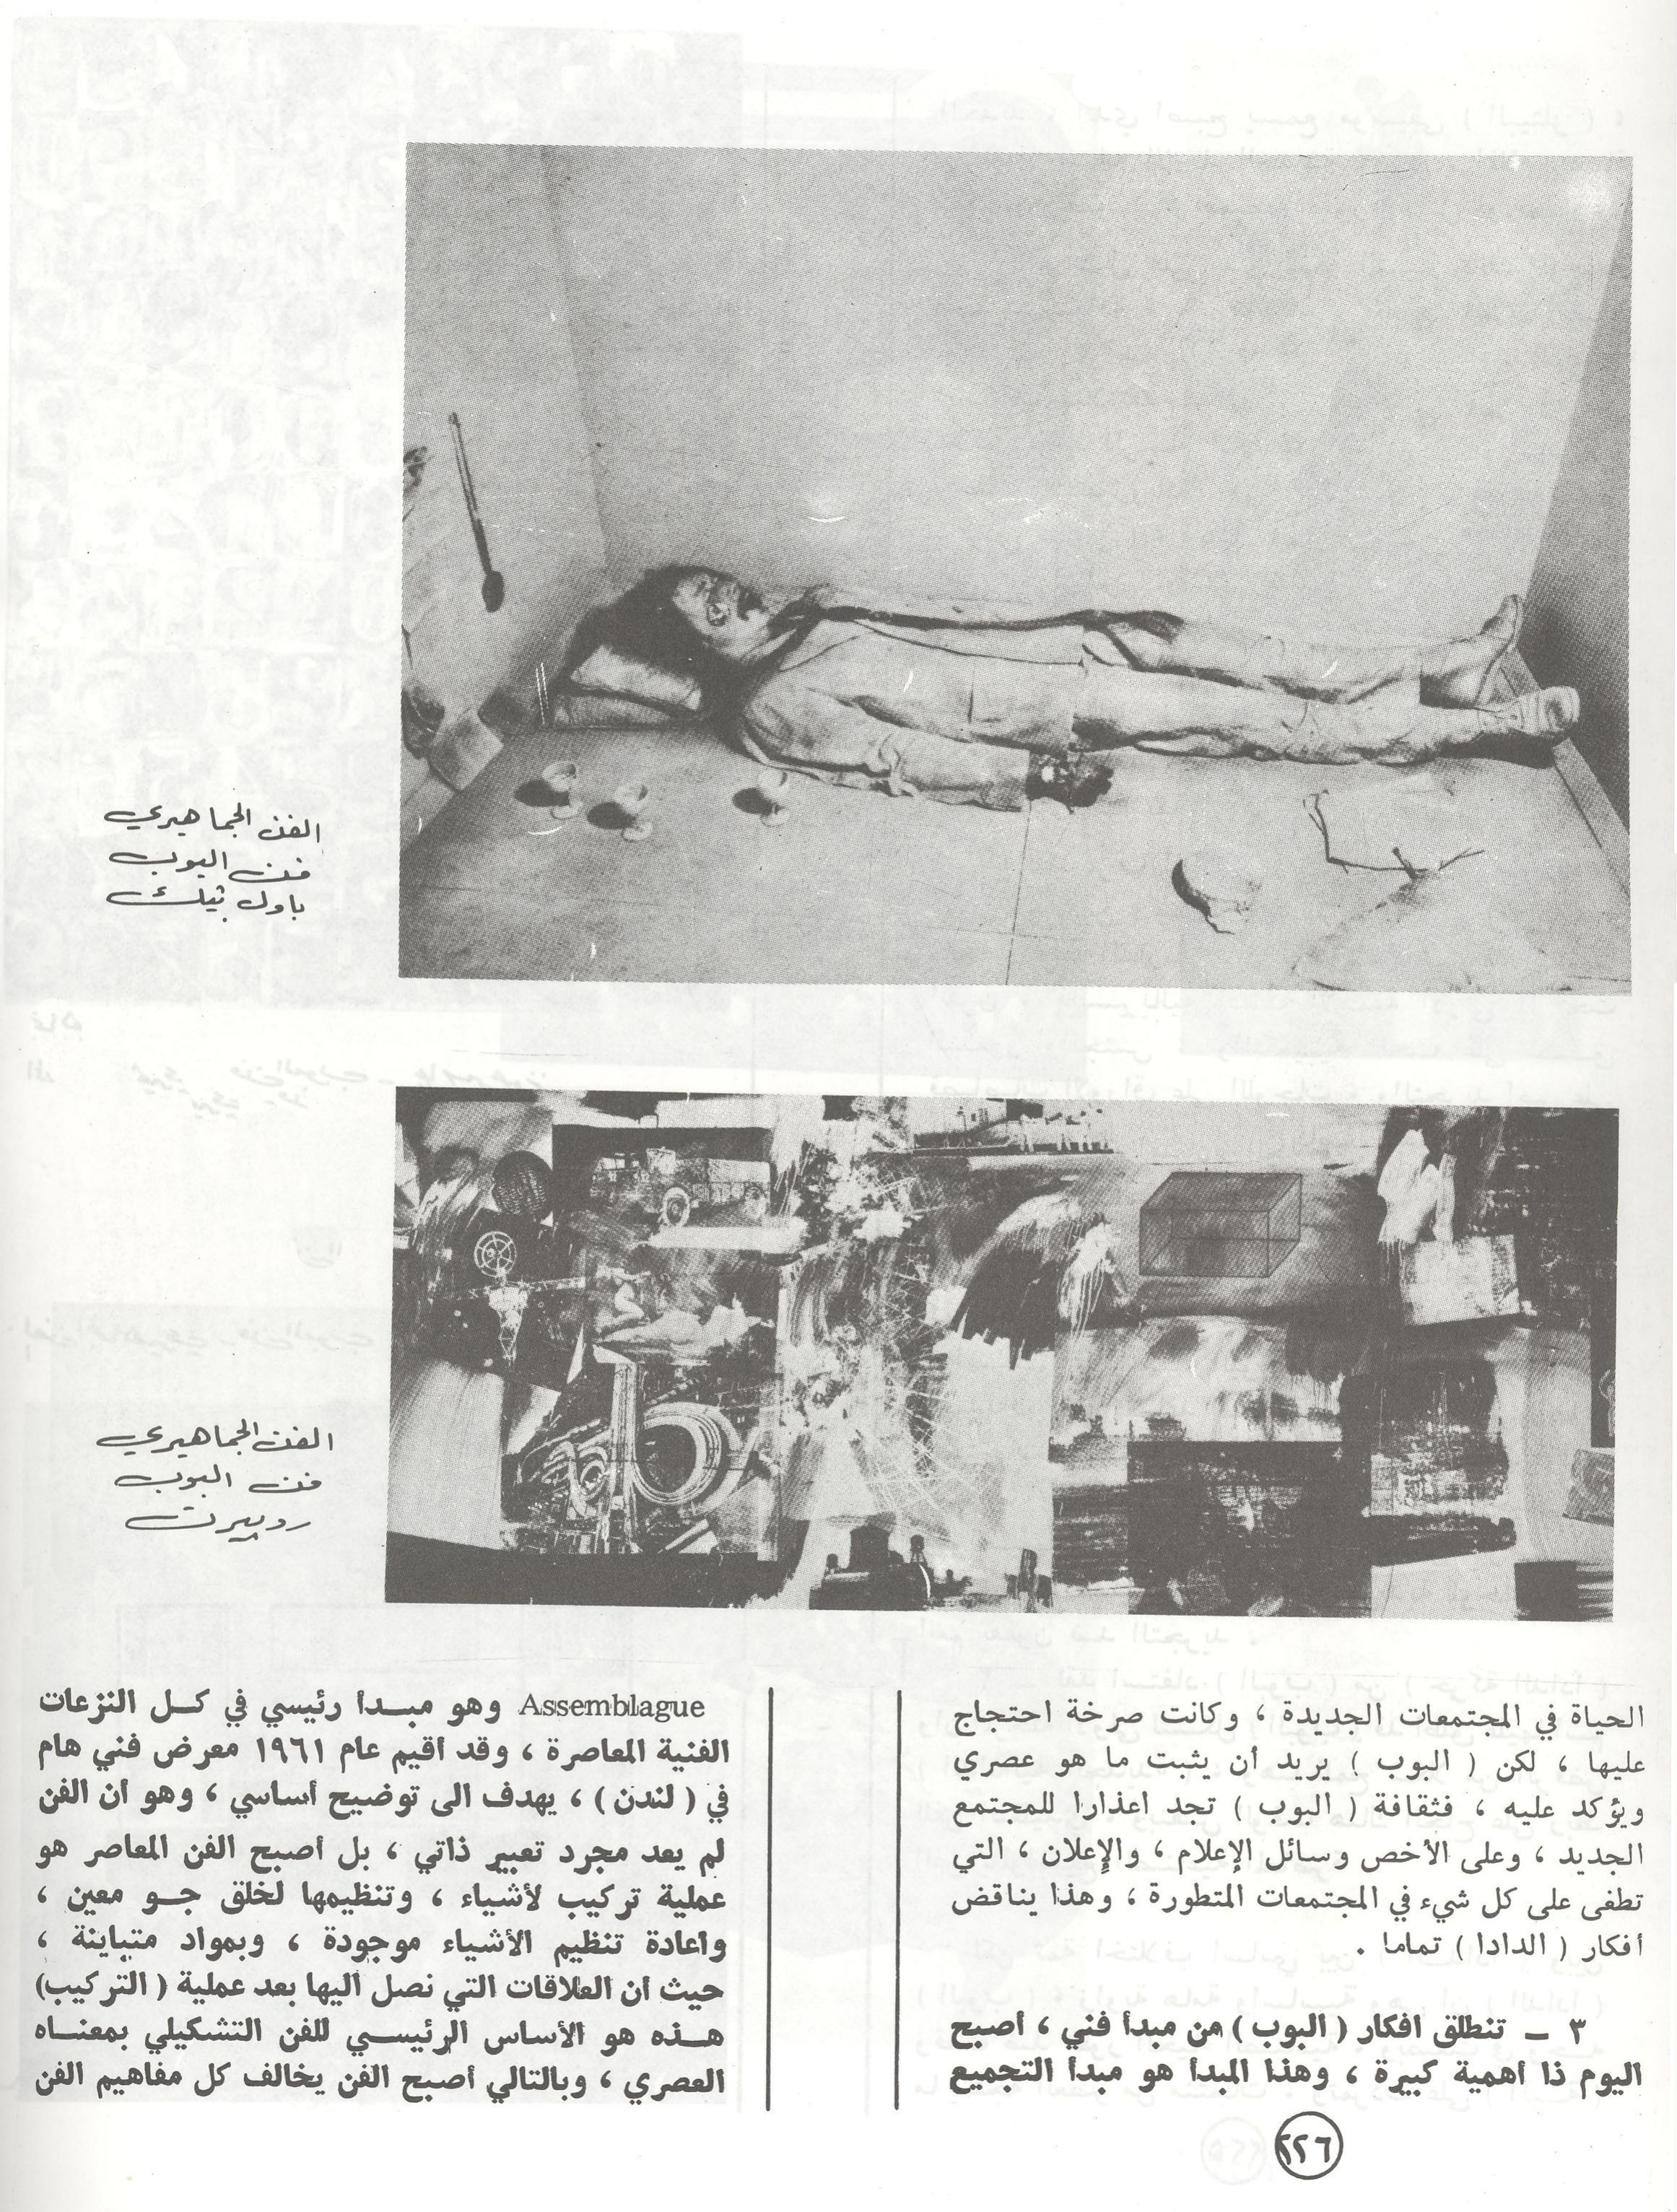 الفن الجماهيري
فن البوب
باول ثيك
الفن الجماهيري
فن البوب
روبرت
الحياة في المجتمعات الجديدة ، وكانت صرخة احتجاج
عليها ، لكن ( البوب ) يريد أن يثبت ما هو عصري
ويؤكد عليه ، فثقافة ( البوب ) تجد اعذارا للمجتمع
الجديد ، وعلى الأخص وسائل الإعلام ، والإعلان ، التي
تطفى على كل شيء في المجتمعات المتطورة ، وهذا يناقض
أفكار ( الدادا ) تماما .
٣ ــ تنطلق افكار ( البوب ) من مبدأ فني ، أصبح
اليوم ذا أهمية كبيرة ، وهذا المبدأ هو مبدأ التجميع
Assemblague وهو مبـدأ رئيسي في كـل النزعات
الفنية المعاصرة ، وقد أقيم عام ١٩٦١ معرض فني هام
في ( لندن ) ، يهدف الى توضيح أساسي ، وهو أن الفن
لم يعد مجرد تعبير ذاتي ، بل أصبح الفن المعاصر هو
عملية تركيب لأشياء ، وتنظيمها لخلق جـو معين ،
واعادة تنظيم الأشياء موجودة ، وبمواد متباينة ،
حيث ان العلاقات التي نصل اليها بعد عملية ( التركيب)
هـذه هو الأساس الرئيسـي للفن التشكيلي بمعنـاه
العصري ، وبالتالي أصبح الفن يخالف كل مفاهيم الفن
٢٢٦